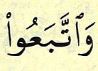 وَٱتَّبَعُواْ